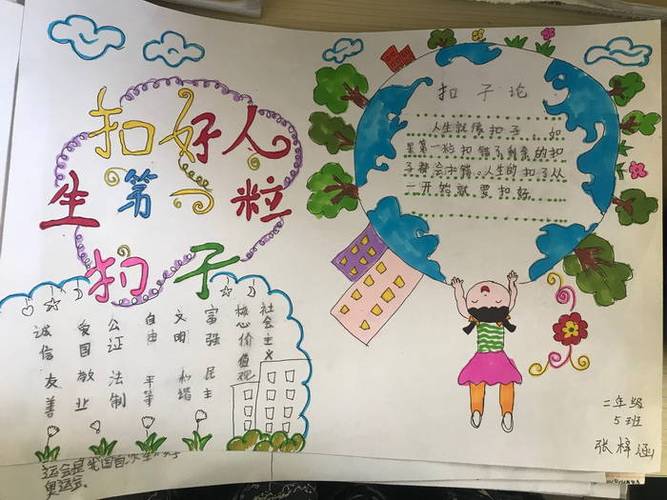 扣好人
生第一粒
扣子
社会主义
核心价值观
富强 民主
文明 和谐
自由 平等
公证 法制
爱国 敬业
诚信 友善
扣子论
人生就像扣子,如
果第一粒扣错了剩余的扣
子都会扣错,人生的扣子从
一开始就要扣好。
二年级
5班
张梓涵
运会是我国首次
奥运会。